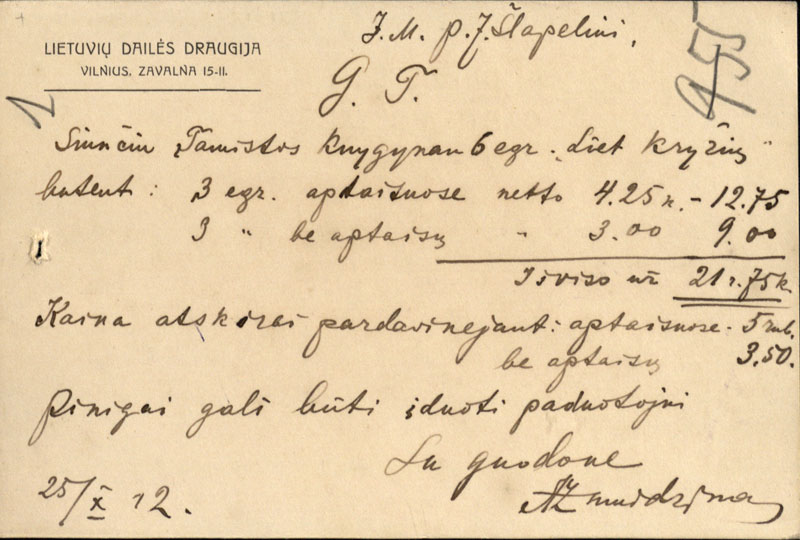 J. M. p. J. Šlapelini,
LIETUVIŲ DAILĖS DRAUGIJA
VILNIUS, ZAVALNA 15-11.
955
G. T.
Siunčiu Tamistos knygynan 6 egz. „Liet kryžių"
butent: 3 egz. aptaisuose netto 4.25 k. - 12.75
3 „ be aptaisų „ 3.00 9.00
Išviso už 21 r. 75 k.
Kaina atskirai pardavinėjant: aptaisuose - 5 rub.
be aptaisų 3.50.
Pinigai gali būti įduoti paduotojui
Su guodone
25/X 12. AŽmuidzinav